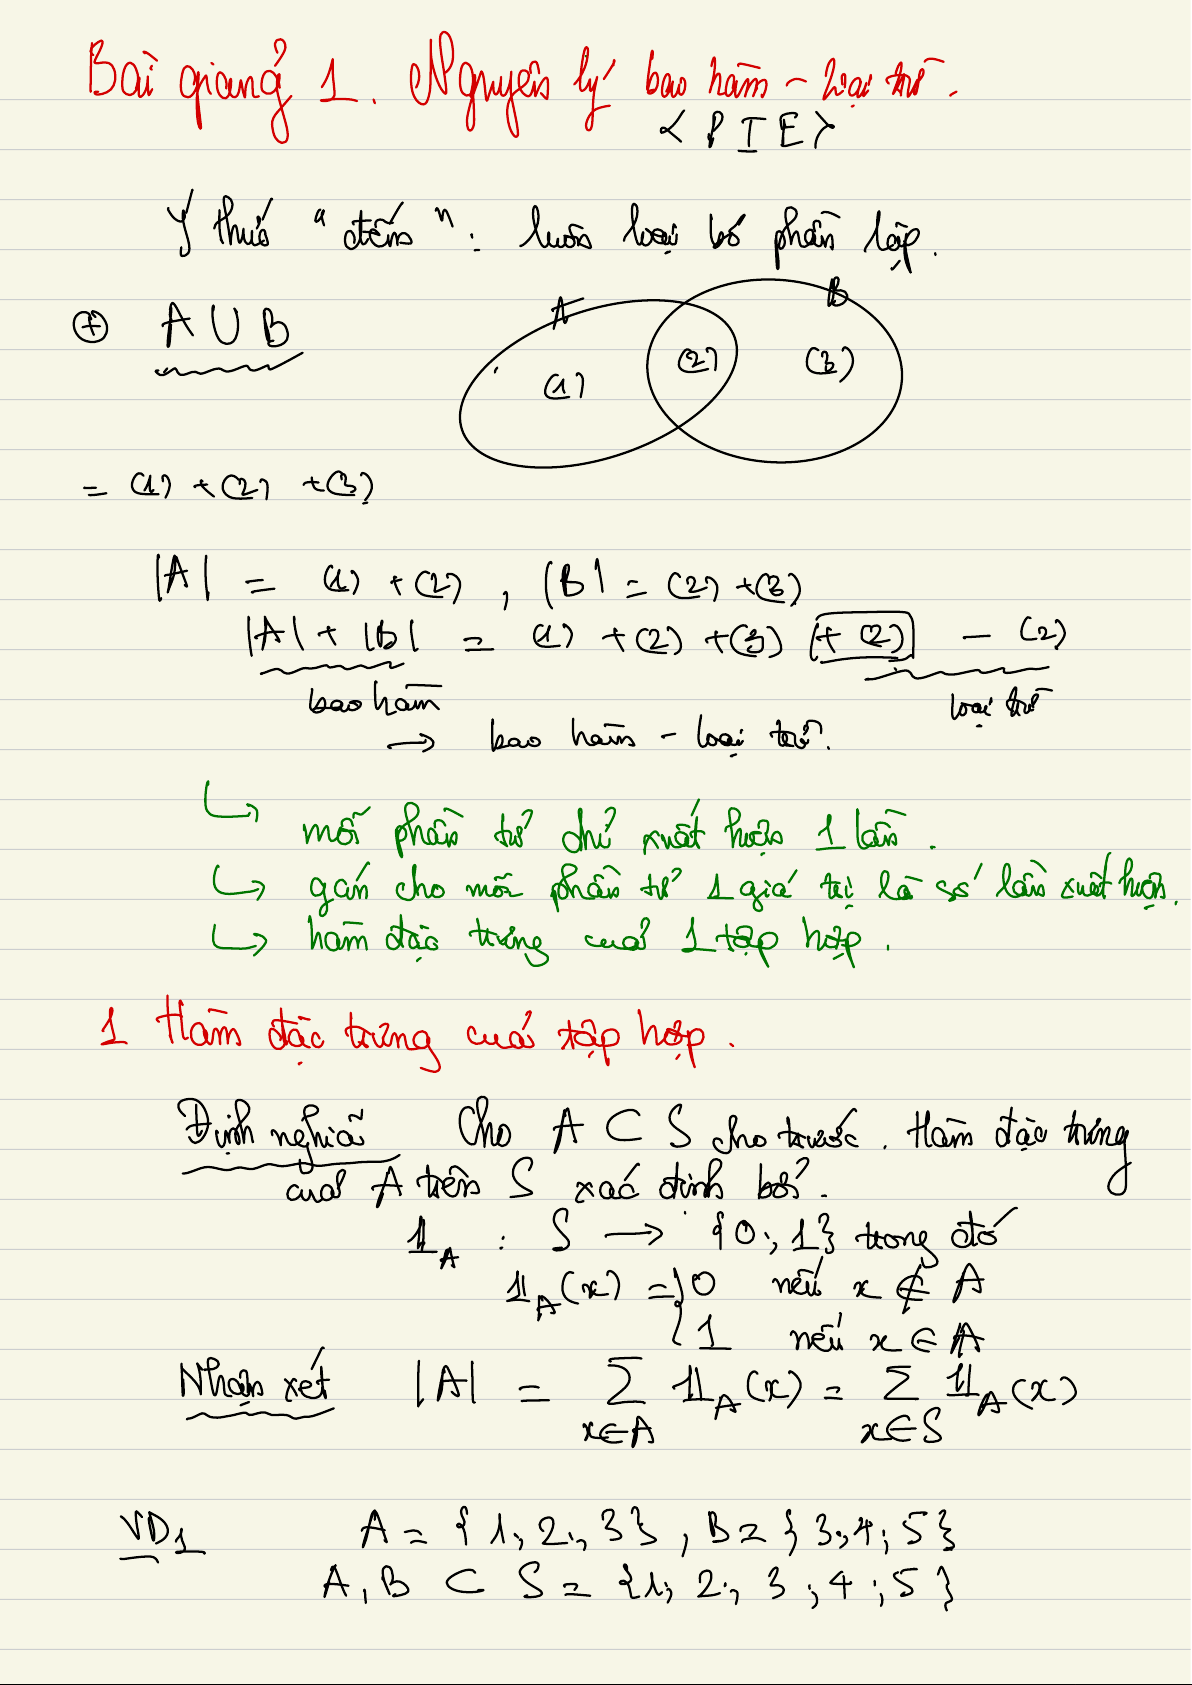 Bài giảng 1. Nguyên lý bao hàm - loại trừ.
< PIE >
Ý thức "đếm": luôn loại bỏ phần lặp.
⊕ A ∪ B
A
B
(1)
(2)
(3)
= (1) + (2) + (3)
|A| = (1) + (2) , |B| = (2) + (3)
|A| + |B| = (1) + (2) + (3) [+ (2)] - (2)
bao hàm
loại trừ
→ bao hàm - loại trừ.
↳ mỗi phần tử chỉ xuất hiện 1 lần.
↳ gán cho mỗi phần tử 1 giá trị là số lần xuất hiện.
↳ hàm đặc trưng của 1 tập hợp.
1 Hàm đặc trưng của tập hợp.
Định nghĩa Cho A ⊂ S cho trước. Hàm đặc trưng
của A trên S xác định bởi.
𝟙_A : S → {0; 1} trong đó
𝟙_A(x) = { 0 nếu x ∉ A
{ 1 nếu x ∈ A
Nhận xét |A| = ∑_{x∈A} 𝟙_A(x) = ∑_{x∈S} 𝟙_A(x)
VD1 A = {1; 2; 3} , B = {3; 4; 5}
A, B ⊂ S = {1; 2; 3; 4; 5}